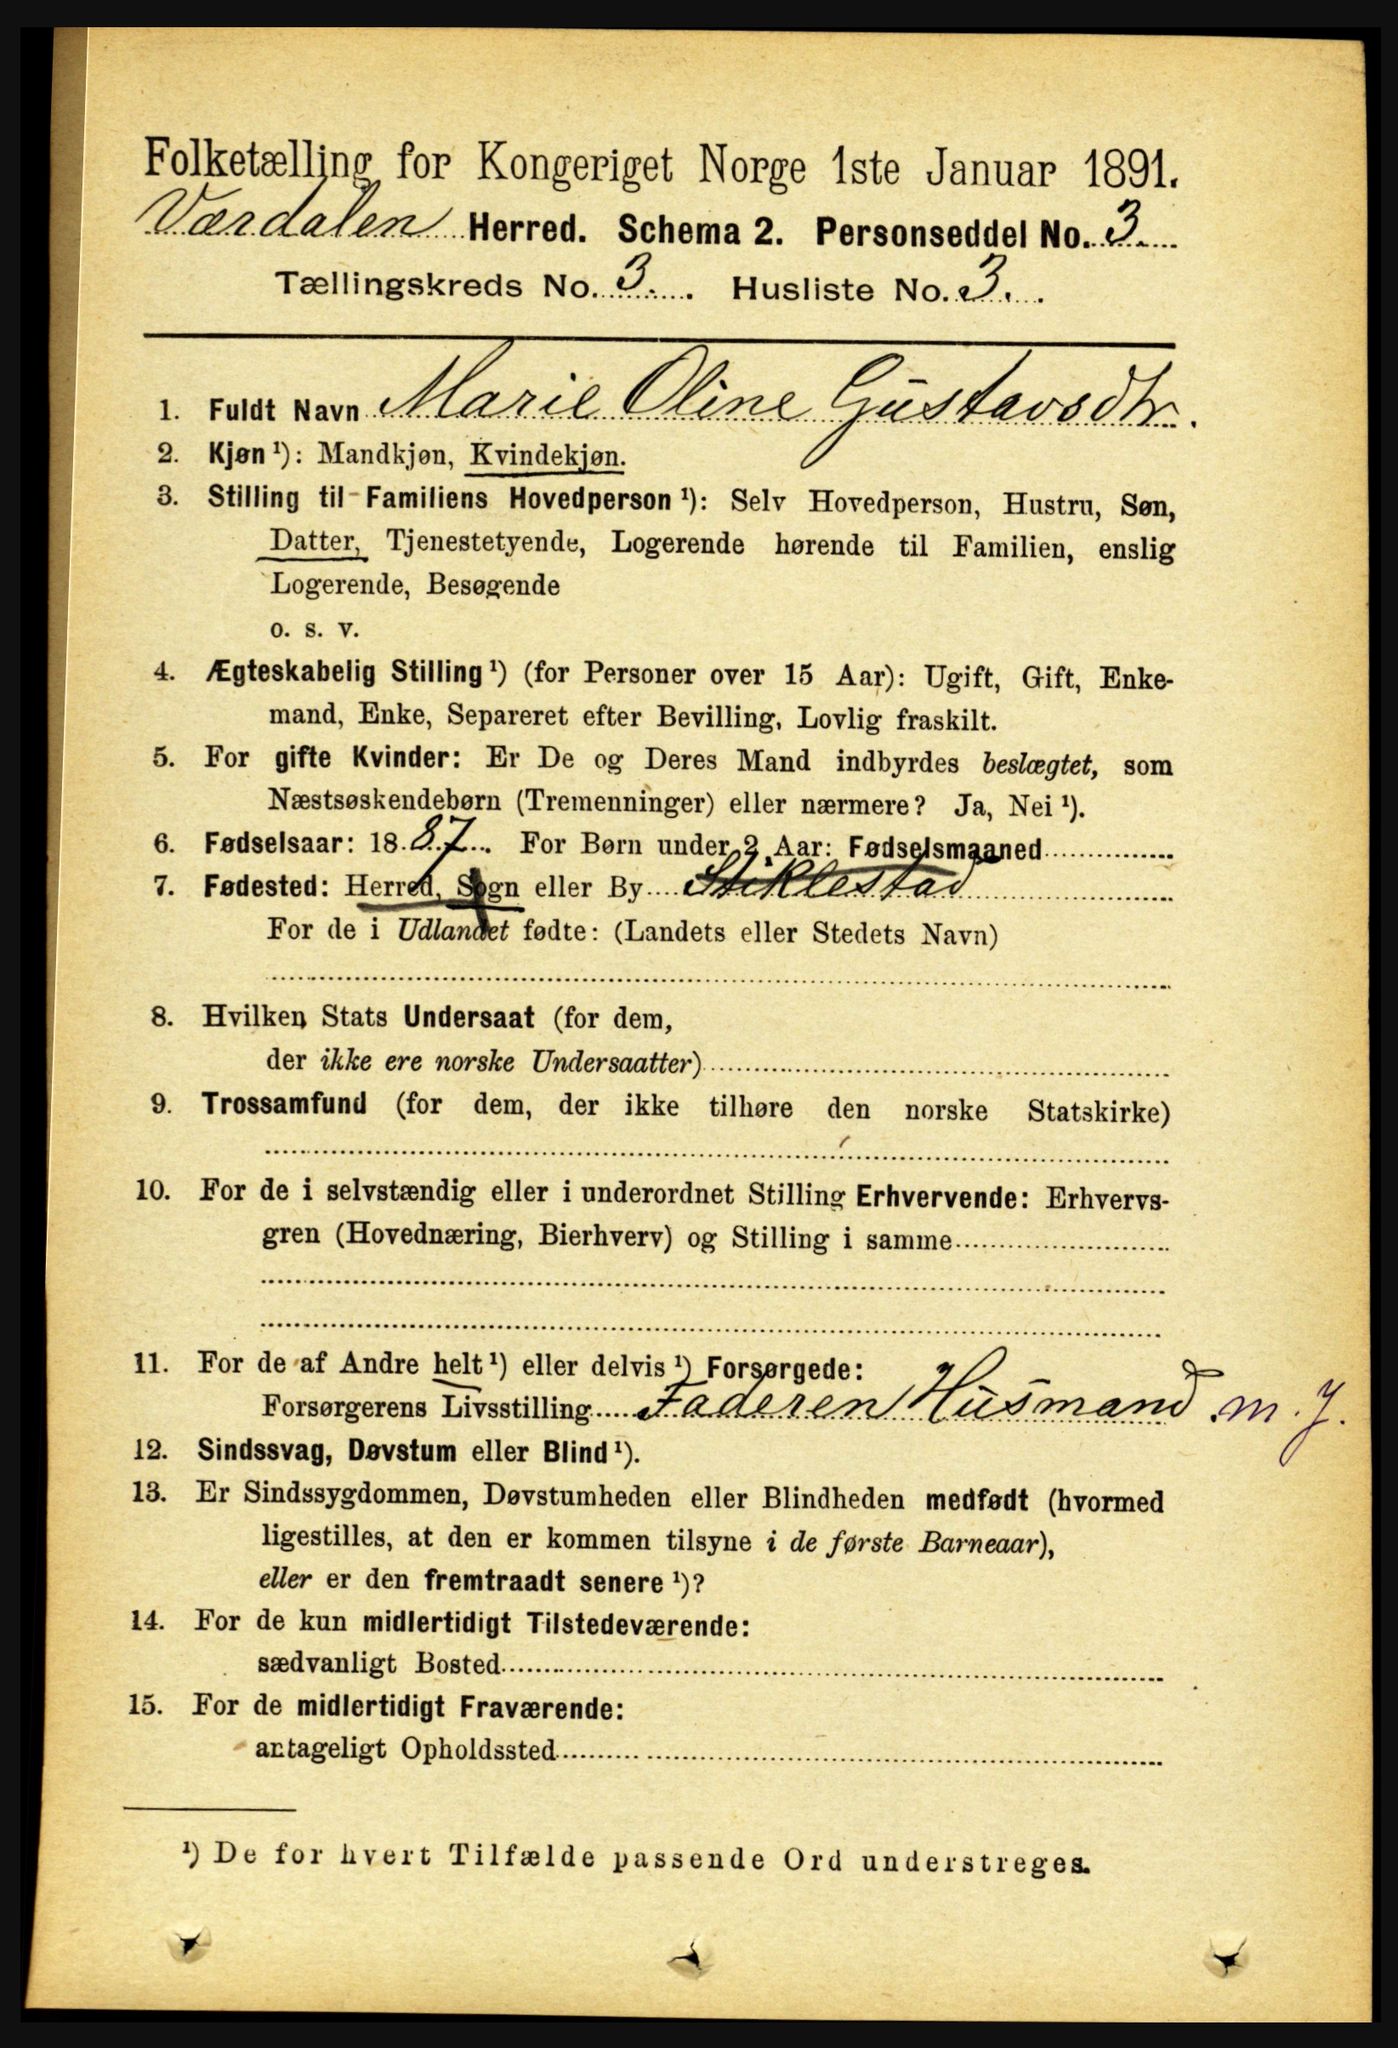 Folketælling for Kongeriget Norge 1ste Januar 1891.
Værdalen Herred. Schema 2. Personseddel No. 3.
Tællingskreds No. 3. Husliste No. 3.
1. Fuldt Navn Marie Oline Gustavsdtr.
2. Kjøn ¹): Mandkjøn, Kvindekjøn.
3. Stilling til Familiens Hovedperson ¹): Selv Hovedperson, Hustru, Søn,
Datter, Tjenestetyende, Logerende hørende til Familien, enslig
Logerende, Besøgende
o. s. v.
4. Ægteskabelig Stilling ¹) (for Personer over 15 Aar): Ugift, Gift, Enke-
mand, Enke, Separeret efter Bevilling, Lovlig fraskilt.
5. For gifte Kvinder: Er De og Deres Mand indbyrdes beslægtet, som
Næstsøskendebørn (Tremenninger) eller nærmere? Ja, Nei ¹).
6. Fødselsaar: 1887. For Børn under 2 Aar: Fødselsmaaned
7. Fødested: Herred, Sogn eller By Stiklestad
For de i Udlandet fødte: (Landets eller Stedets Navn)
8. Hvilken Stats Undersaat (for dem,
der ikke ere norske Undersaatter)
9. Trossamfund (for dem, der ikke tilhøre den norske Statskirke)
10. For de i selvstændig eller i underordnet Stilling Erhvervende: Erhvervs-
gren (Hovednæring, Bierhverv) og Stilling i samme
11. For de af Andre helt ¹) eller delvis ¹) Forsørgede:
Forsørgerens Livsstilling Faderen Husmand m. J.
12. Sindssvag, Døvstum eller Blind ¹).
13. Er Sindssygdommen, Døvstumheden eller Blindheden medfødt (hvormed
ligestilles, at den er kommen tilsyne i de første Barneaar),
eller er den fremtraadt senere ¹)?
14. For de kun midlertidigt Tilstedeværende:
sædvanligt Bosted
15. For de midlertidigt Fraværende:
antageligt Opholdssted
¹) De for hvert Tilfælde passende Ord understreges.